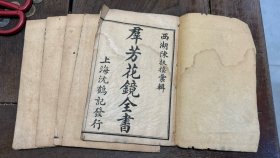 西湖陳扶摇彙輯
羣芳花鏡全書
上海沈鶴記發行